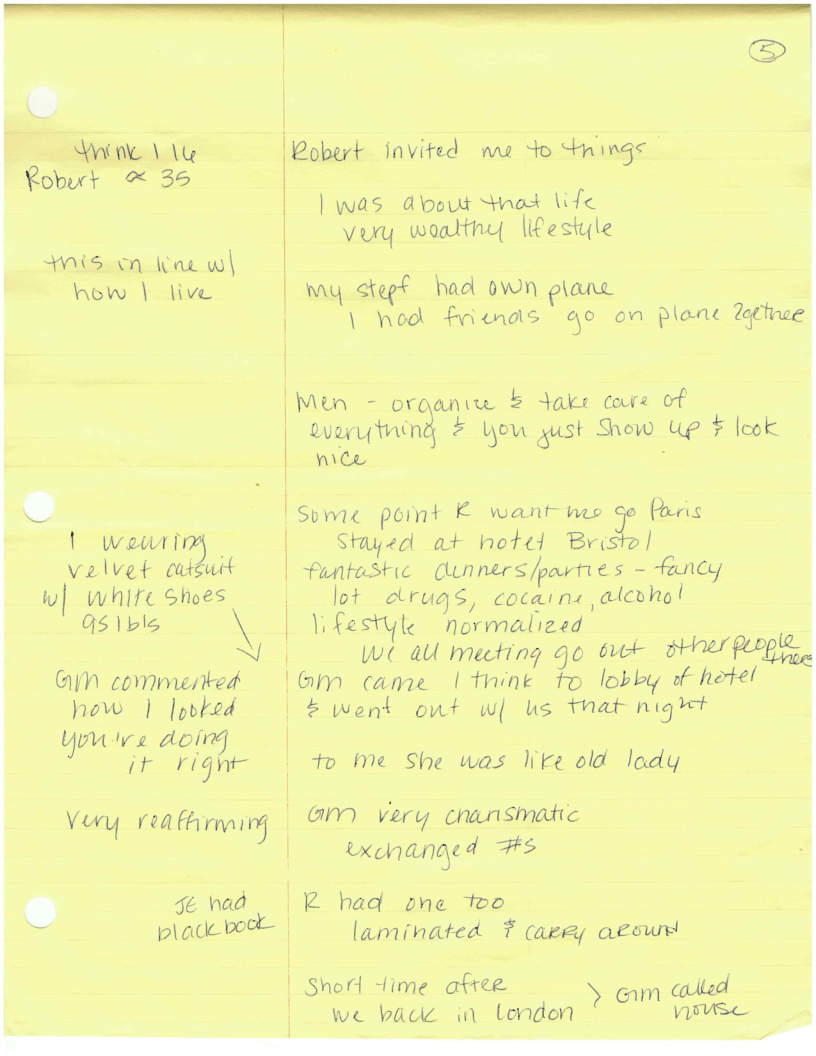 5
think I 16
Robert ∝ 35
Robert invited me to things
I was about that life
very wealthy lifestyle
this in line w/
how I live
my stepf had own plane
I had friends go on plane 2gether
Men - organize & take care of
everything & you just show up & look
nice
Some point R want me go Paris
Stayed at hotel Bristol
I wearing
velvet catsuit
w/ white shoes
95 lbs
fantastic dinners/parties - fancy
lot drugs, cocaine, alcohol
lifestyle normalized
we all meeting go out other people there
GM commented
how I looked
you're doing
it right
GM came I think to lobby of hotel
& went out w/ us that night
to me she was like old lady
very reaffirming
GM very charismatic
exchanged #s
JE had
black book
R had one too
laminated & carry around
Short time after
we back in London > GM called
house